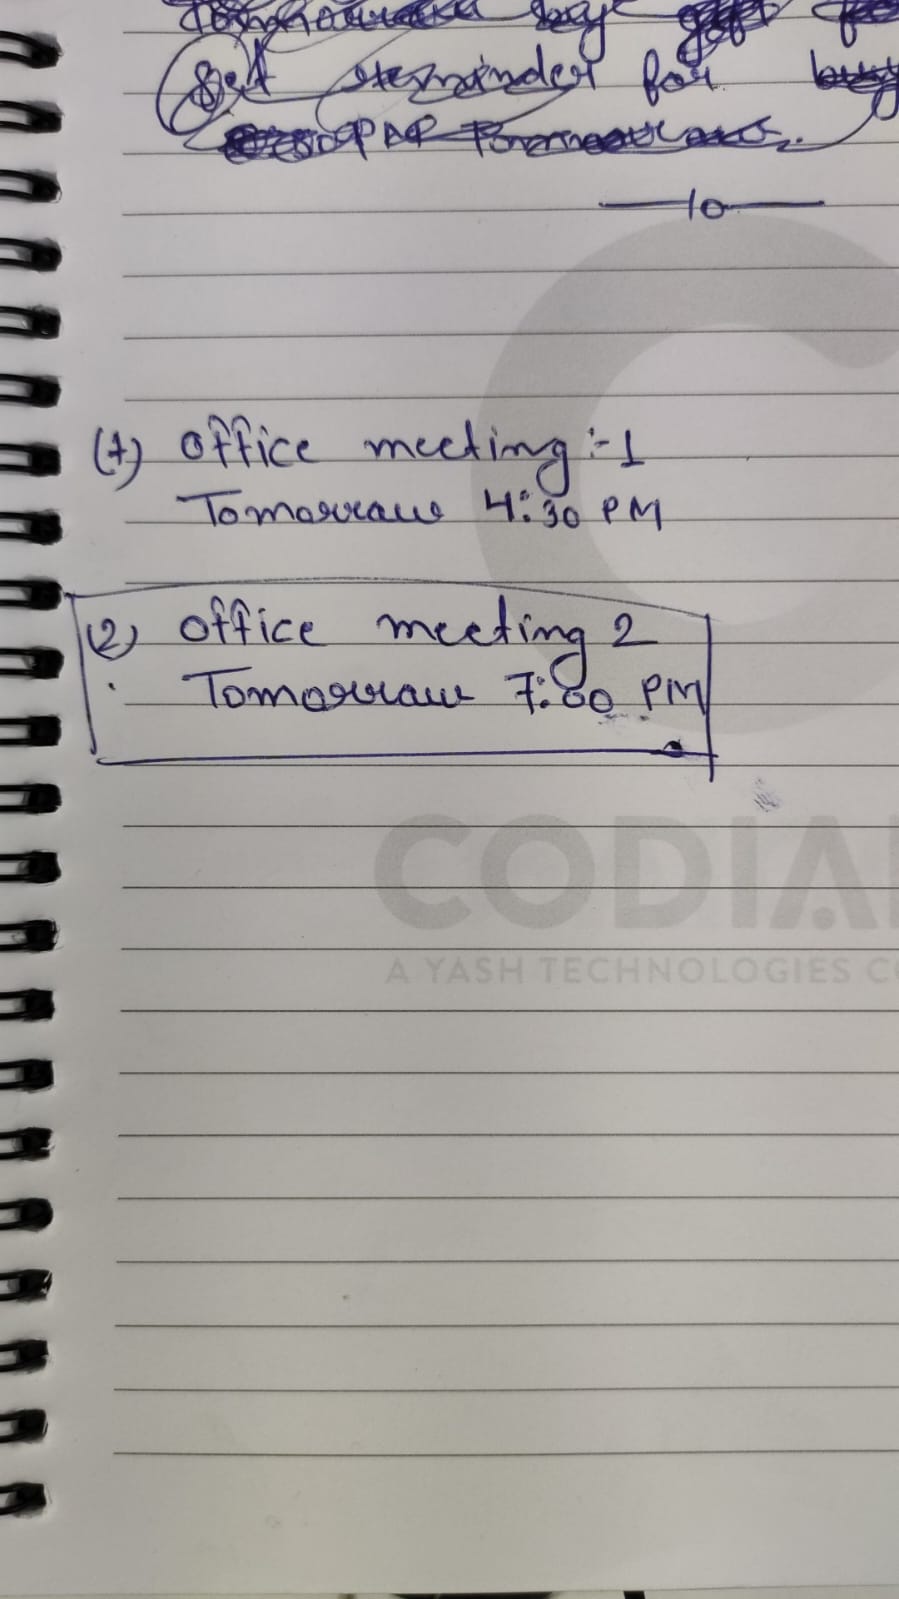 Set reminder for
—10—
(1) office meeting :- 1
Tomorraw 4:30 PM
(2) office meeting 2
Tomorraw 7:00 PM
CODIA
A YASH TECHNOLOGIES CO